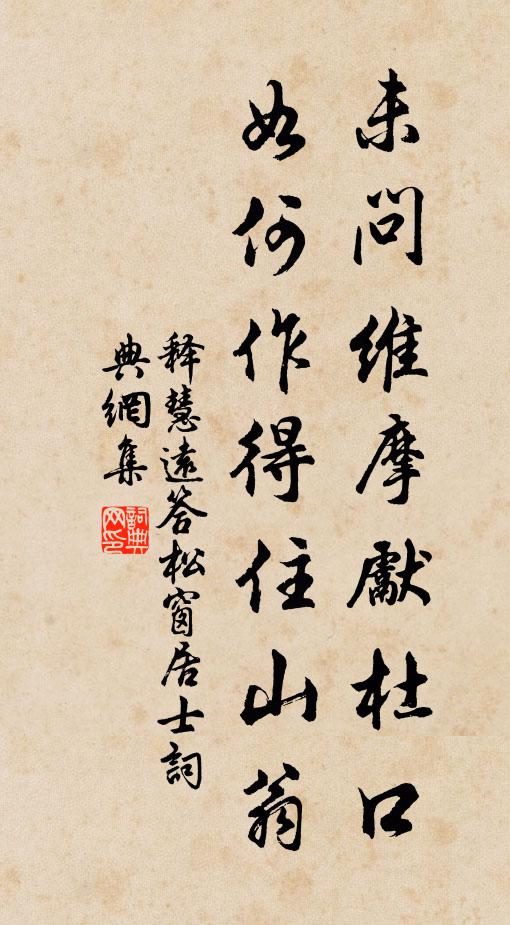 未問維摩獻杜口
如何作得住山翁
释慧遠答松窗居士詞
典網集
詞典网印